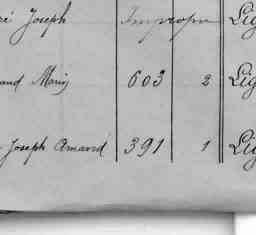 ré Joseph Impropre Lig
and Marie 603 2 Lig
Joseph Amand 391 1 Lig